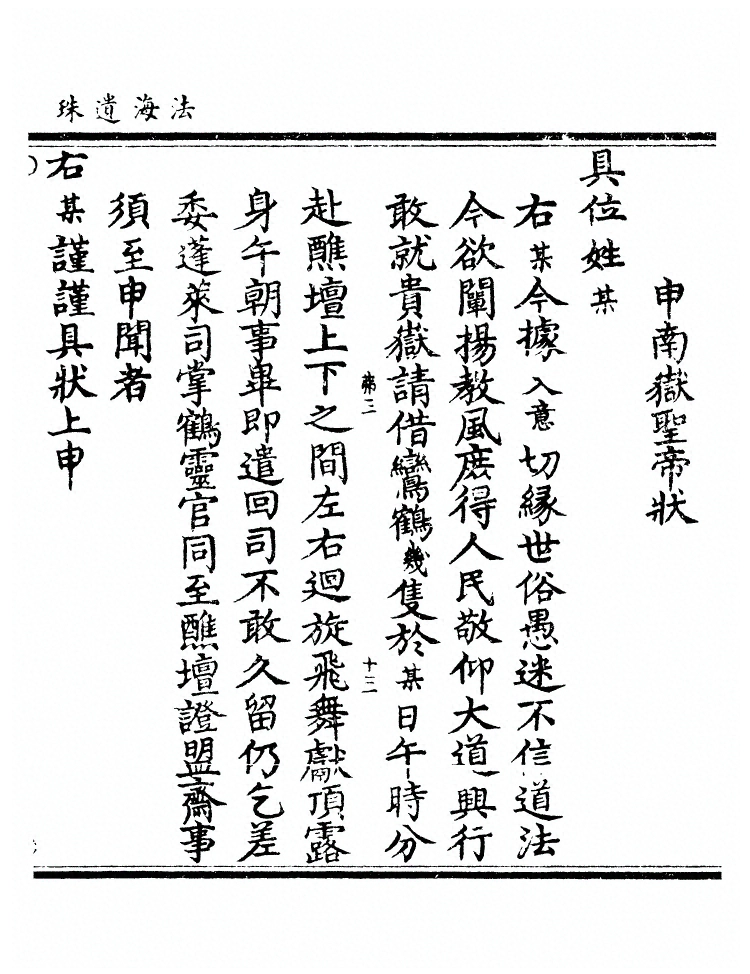 法海遺珠
申南嶽聖帝狀
具位姓某
右某今據入意切緣世俗愚迷不信道法
今欲闡揚教風庶得人民敬仰大道興行
敢就貴嶽請借鸞鶴幾隻於某日午時分
第三
十三
赴醮壇上下之間左右迴旋飛舞獻頂露
身午朝事畢即遣回司不敢久留仍乞差
委蓬萊司掌鶴靈官同至醮壇證盟齋事
須至申聞者
右某謹謹具狀上申